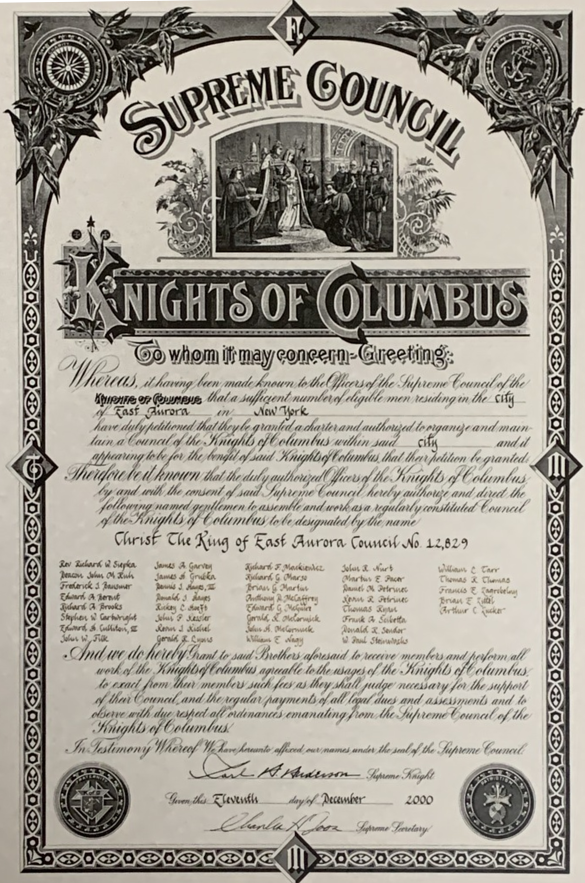 F.
SUPREME COUNCIL
KNIGHTS OF COLUMBUS
To whom it may concern-Greeting:
Whereas, it having been made known to the Officers of the Supreme Council of the
Knights of Columbus that a sufficient number of eligible men residing in the city
of East Aurora in New York
have duly petitioned that they be granted a charter and authorized to organize and main
tain a Council of the Knights of Columbus within said city and it
appearing to be for the benefit of said Knights of Columbus, that their petition be granted
Therefore be it known that the duly authorized Officers of the Knights of Columbus
by and with the consent of said Supreme Council hereby authorize and direct the
following named gentlemen to assemble and work as a regularly constituted Council
of the Knights of Columbus to be designated by the name
Christ The King of East Aurora Council No. 12,829
Rev. Richard W. Siepka James A. Garvey Richard F. Mankiewicz John R. Nurt William C. Tarr
Deacon John M. Ruh James A. Grubka Richard G. Marso Martin E. Pacer Thomas R. Thomas
Frederick J. Dennis J. Hayes, III Brian G. Martin Daniel N. Petrinec Francis E.
Edward A. Bernst Donald J. Hayes Anthony R. McCaffrey Kevin R. Petrinec Brian E.
Richard A. Brooks Rickey C. Edward G. McGuire Thomas Ryan Arthur C. Zucker
Stephen W. Cartwright John P. Kessler Gerald R. McCormick Frank A.
Edward A. III Kevin J. John A. McCormick Ronald R. Sandor
John W. Fisk Gerald R. Lyons William E. Nagy W. Paul
And we do hereby Grant to said Brothers aforesaid to receive members and perform all
work of the Knights of Columbus agreeable to the usages of the Knights of Columbus,
to exact from their members such fees as they shall judge necessary for the support
of their Council, and the regular payments of all legal dues and assessments and to
observe with due respect all ordinances emanating from the Supreme Council of the
Knights of Columbus.
In Testimony Whereof We have hereunto affixed our names under the seal of the Supreme Council
Carl A. Anderson Supreme Knight
Given this Eleventh day of December 2000
Charles H. Foos Supreme Secretary